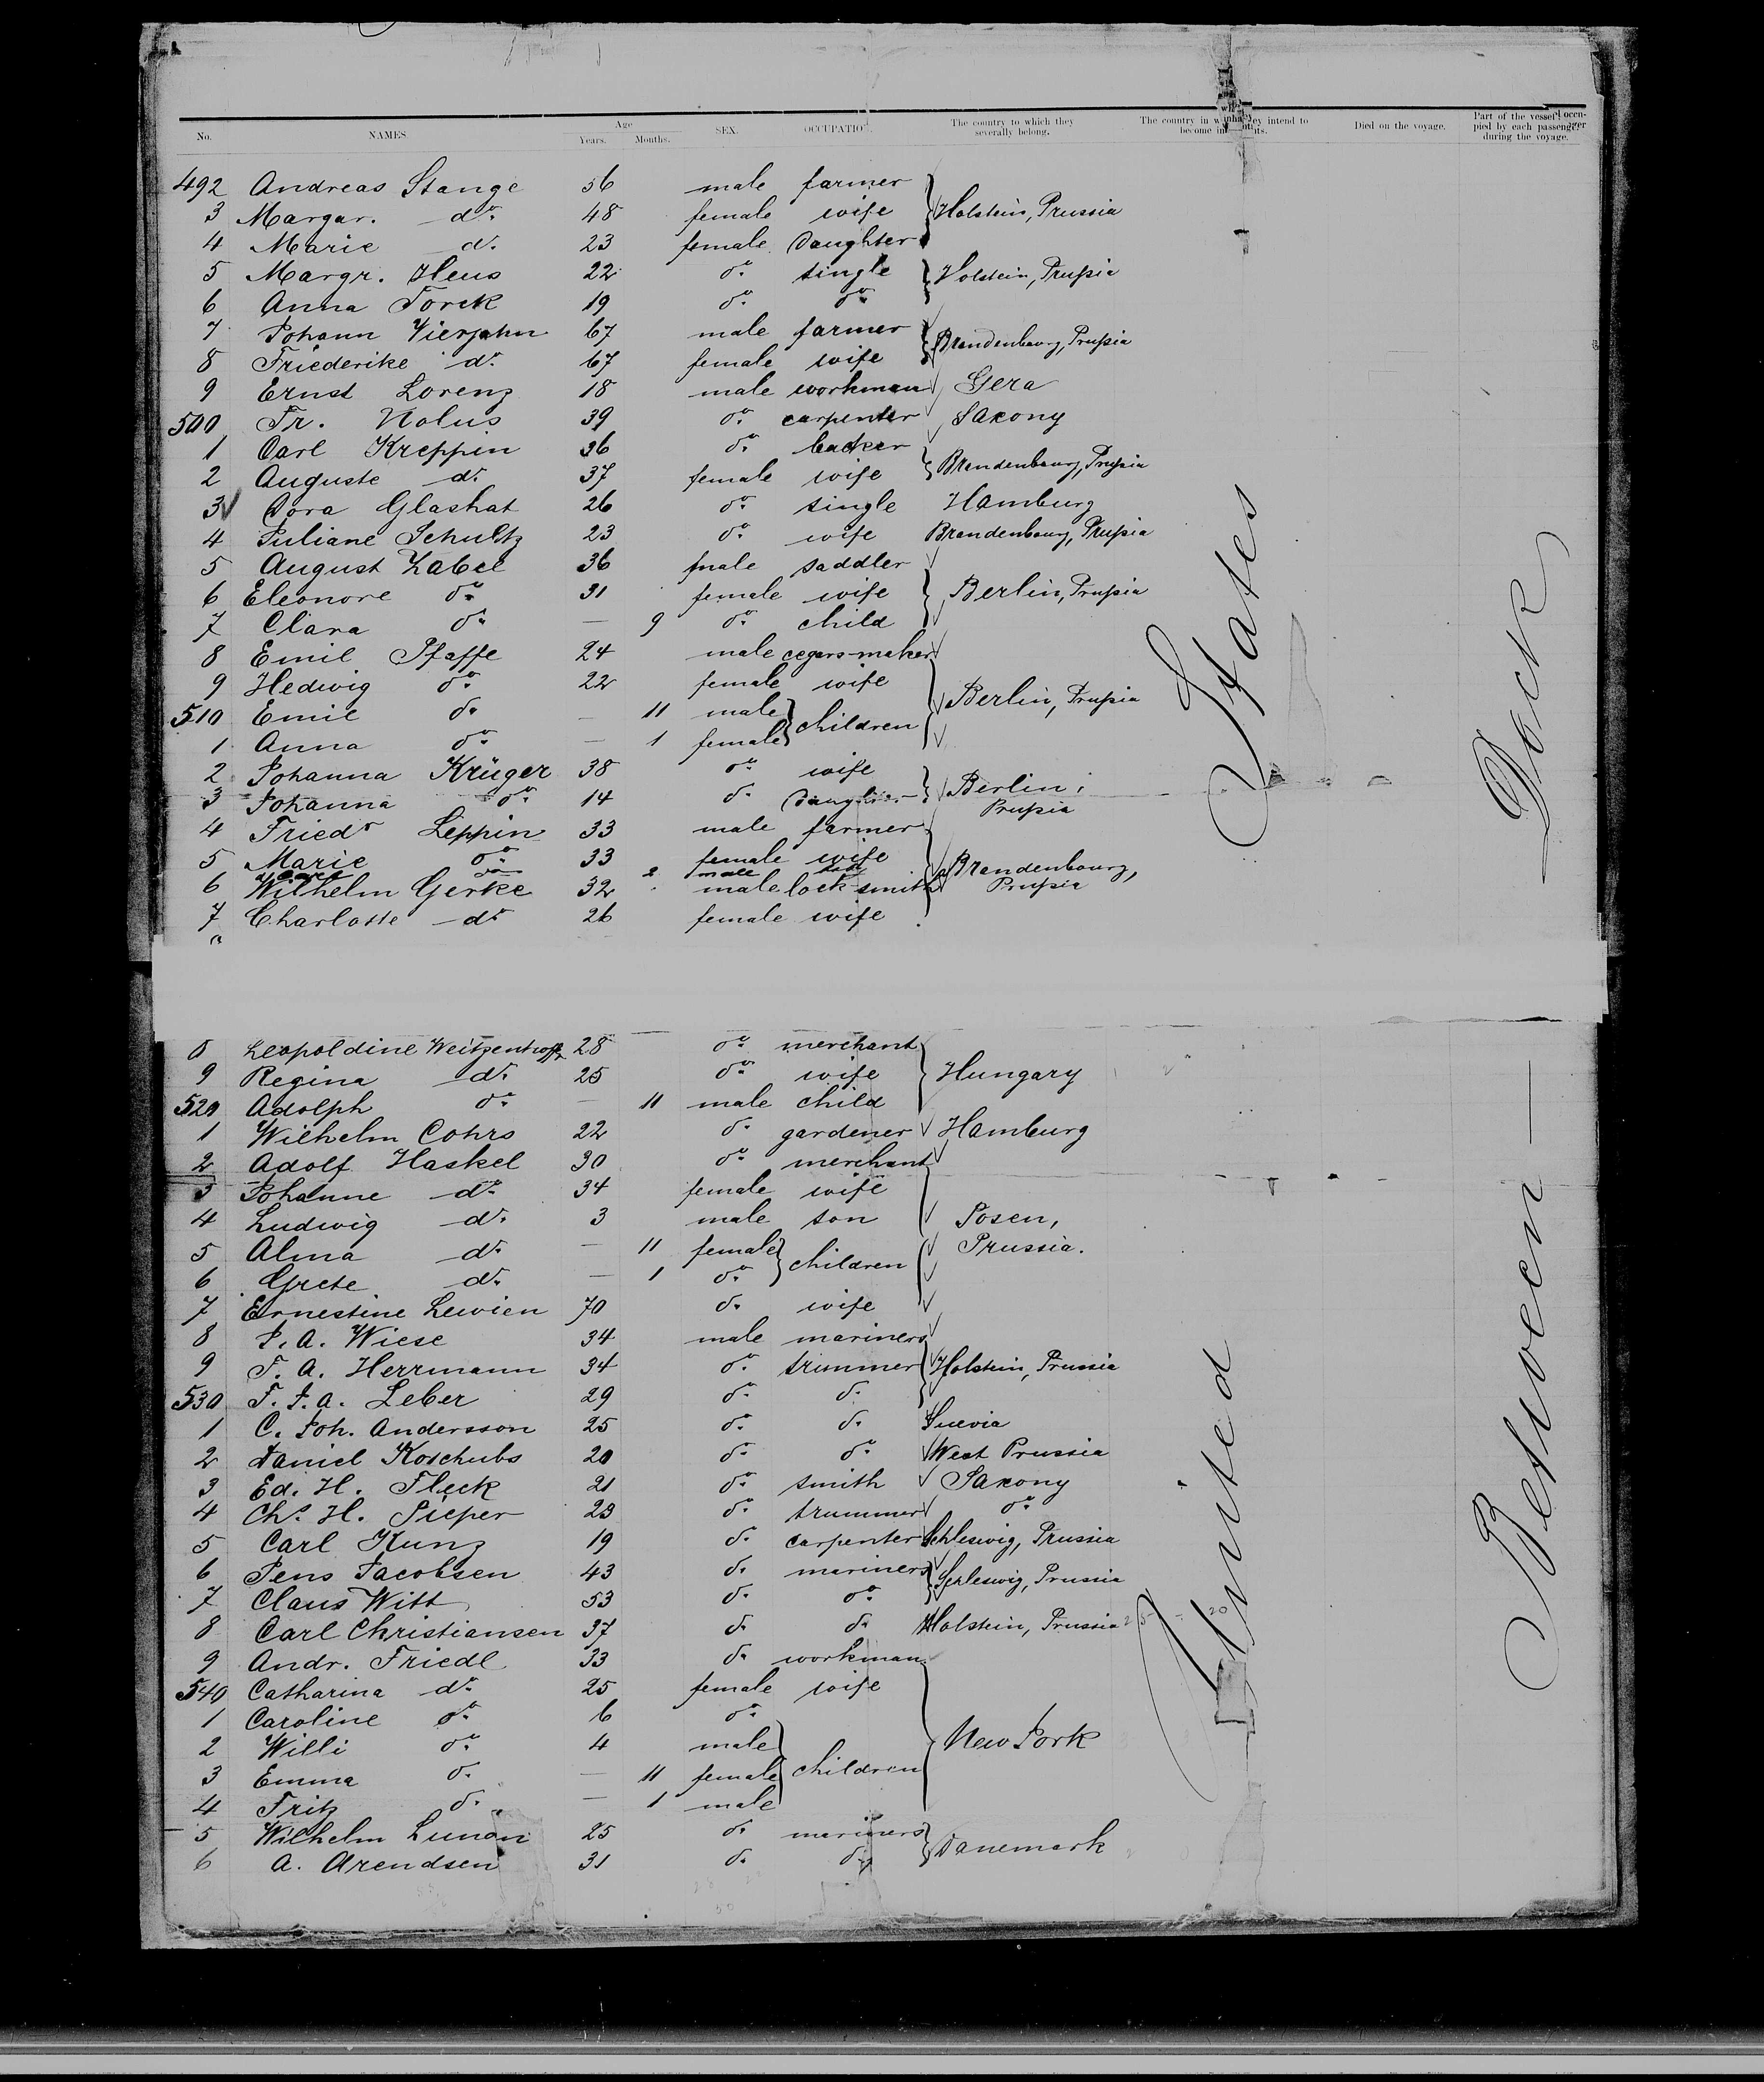 No. NAMES. Age Years. Months. SEX. OCCUPATION. The country to which they severally belong. The country in which they intend to become inhabitants. Died on the voyage. Part of the vessel occupied by each passenger during the voyage.
492 Andreas Stange 56 male farmer
3 Margar. do. 48 female wife Holstein, Prussia
4 Marie do. 23 female Daughter
5 Margr. Heus 22 do. single Holstein, Prussia
6 Anna Torck 19 do. do.
7 Johann Vierjahn 67 male farmer
8 Friederike do. 67 female wife Brandenbourg, Prussia
9 Ernst Lorenz 18 male workman Gera
500 Fr. Nolus 39 do. carpenter Saxony
1 Carl Kreppin 36 do. backer
2 Auguste do. 37 female wife Brandenbourg, Prussia
3 Dora Glashat 26 do. single Hamburg
4 Juliane Schultz 23 do. wife Brandenbourg, Prussia
5 August Zabel 36 male saddler
6 Eleonore do. 31 female wife Berlin, Prussia
7 Clara do. — 9 do. child
8 Emil Pfaffe 24 male cegars-maker
9 Hedwig do. 22 female wife
510 Emil do. — 11 male children Berlin, Prussia
1 Anna do. — 1 female
2 Johanna Krüger 38 do. wife
3 Johanna do. 14 do. Daughter Berlin, Prussia
4 Friedr Leppin 33 male farmer
5 Marie do. 33 female wife
do. 2 male
6 Wilhelm Gerke 32 male locksmith Brandenbourg, Prussia
7 Charlotte do. 26 female wife
8 Leopoldine Weitzenhoffer 28 do. merchant
9 Regina do. 25 do. wife Hungary
520 Adolph do. — 11 male child
1 Wilhelm Cohrs 22 do. gardener Hamburg
2 Adolf Haskel 30 do. merchant
3 Johanne do. 34 female wife
4 Ludwig do. 3 male son Posen,
5 Alma do. — 11 female children Prussia.
6 Grete do. — 1 do.
7 Ernestine Lewien 70 do. wife
8 J. A. Wiese 34 male mariners
9 F. A. Herrmann 34 do. trimmer Holstein, Prussia
530 F. J. A. Leber 29 do. do.
1 C. Joh. Andersson 25 do. do. Suevia
2 Daniel Koschubs 20 do. do. West Prussia
3 Ed. H. Fleck 21 do. smith Saxony
4 Chs. H. Pieper 23 do. trummer do.
5 Carl Kunz 19 do. carpenter Schleswig, Prussia
6 Jens Jacobsen 43 do. mariners Schleswig, Prussia
7 Claus Witt 53 do. do.
8 Carl Christiansen 37 do. do. Holstein, Prussia
9 Andr. Friedl 33 do. workman
540 Catharina do. 25 female wife
1 Caroline do. 6 do.
2 Willi do. 4 male New York
3 Emma do. — 11 female children
4 Fritz do. — 1 male
5 Wilhelm Lunon 25 do. mariners Danemark
6 A. Arendsen 31 do. do.
United States
Between Deck